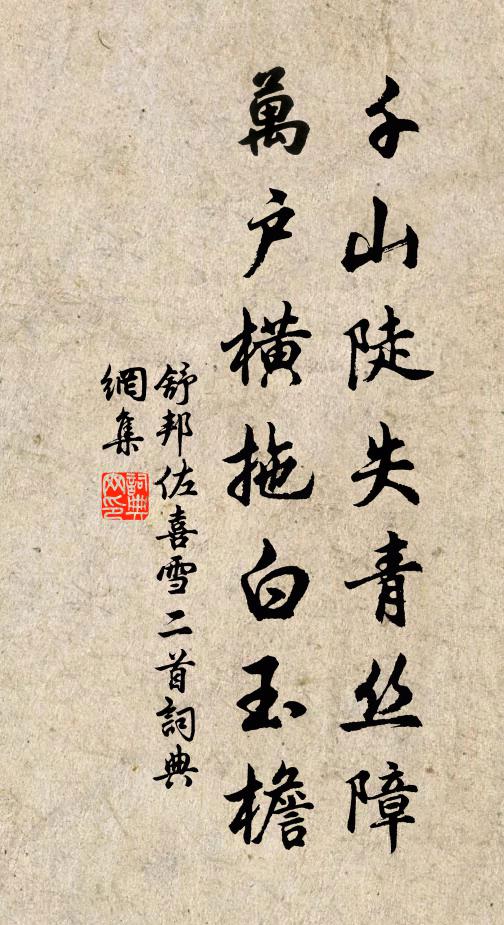 千山陡失青丝障
萬户橫拖白玉檐
舒邦佐喜雪二首詞典
網集
詞典網印